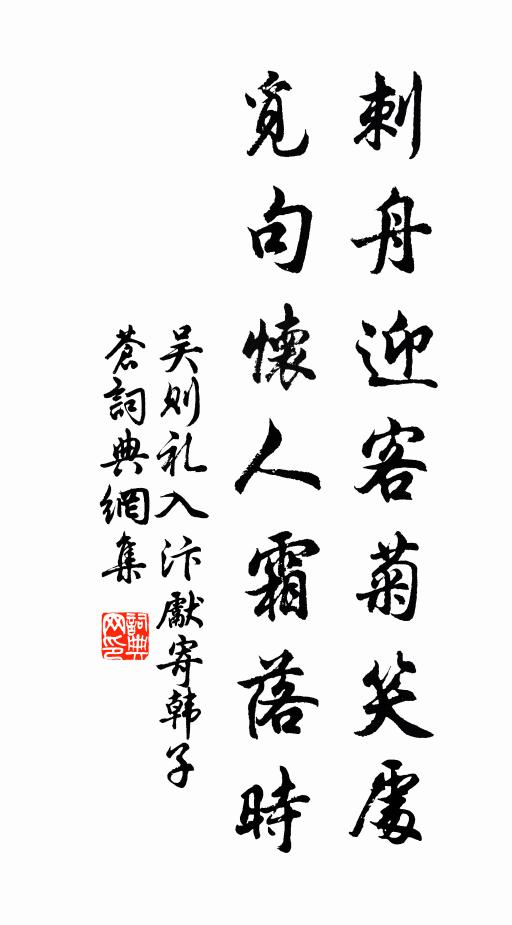 刺舟迎客菊笑處
覓句懷人霜落時
吴则礼入汴獻寄韩子
蒼詞典網集
詞典网印